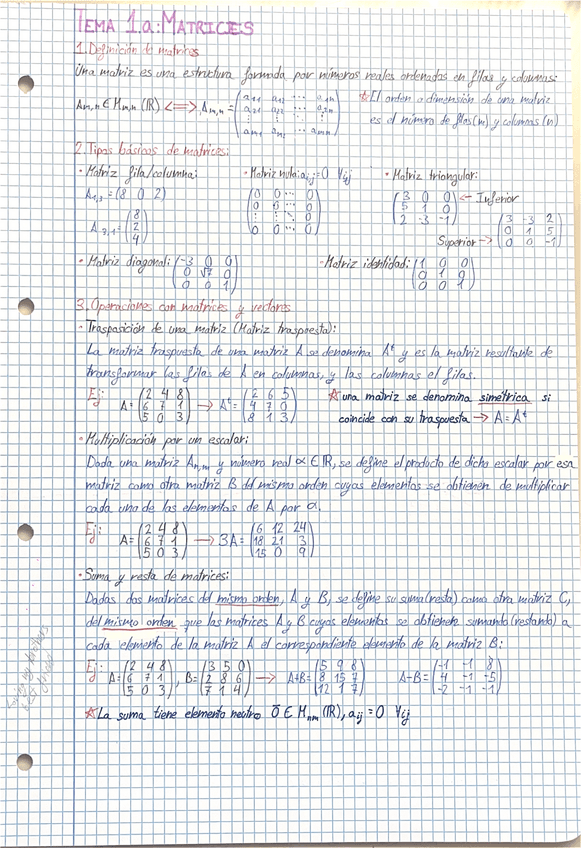 TEMA 1.a: MATRICES
1. Definición de matrices
Una matriz es una estructura formada por números reales ordenadas en filas y columnas:
Am,n ∈ Mm,n (IR) <=> Am,n = (a11 a12 ... a1n
a21 a22 ... a2n
⋮ ⋮ ⋮
am1 am2 ... amn)
☆El orden o dimensión de una matriz
es el número de filas (m) y columnas (n)
2. Tipos básicos de matrices:
· Matriz fila/columna:
A1,3 = (8 0 2)
A3,1 = (8
2
4)
· Matriz nula: aij = 0 ∀ij
(0 0 ... 0
0 0 ... 0
⋮ ⋮ ⋱ 0
0 0 ... 0)
· Matriz triangular:
(3 0 0
5 1 0
2 -3 -1) ← Inferior
Superior → (3 -3 2
0 1 5
0 0 -1)
· Matriz diagonal: (-3 0 0
0 √7 0
0 0 1)
· Matriz identidad: (1 0 0
0 1 0
0 0 1)
3. Operaciones con matrices y vectores
· Trasposición de una matriz (Matriz traspuesta):
La matriz traspuesta de una matriz A se denomina Aᵗ y es la matriz resultante de
transformar las filas de A en columnas, y las columnas el filas.
Ej: A = (2 4 8
6 7 1
5 0 3) → Aᵗ = (2 6 5
4 7 0
8 1 3)
☆ una matriz se denomina simétrica si
coincide con su traspuesta → A = Aᵗ
· Multiplicación por un escalar:
Dada una matriz An,m y número real α ∈ IR, se define el producto de dicho escalar por esa
matriz como otra matriz B del mismo orden cuyos elementos se obtienen de multiplicar
cada uno de las elementos de A por α.
Ej: A = (2 4 8
6 7 1
5 0 3) → 3A = (6 12 24
18 21 3
15 0 9)
· Suma y resta de matrices:
Dadas dos matrices del mismo orden, A y B, se define su suma (resta) como otra matriz C,
del mismo orden que las matrices A y B cuyos elementos se obtienen sumando (restando) a
cada elemento de la matriz A el correspondiente elemento de la matriz B:
Ej: A = (2 4 8
6 7 1
5 0 3), B = (3 5 0
2 8 6
7 1 4) → A+B = (5 9 8
8 15 7
12 1 7)
A-B = (-1 -1 8
4 -1 -5
-2 -1 -1)
☆La suma tiene elemento neutro 0 ∈ Mnm (IR), aij = 0 ∀ij